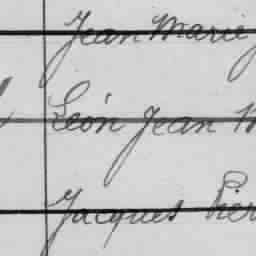 Jean Marie
Léon Jean
Jacques